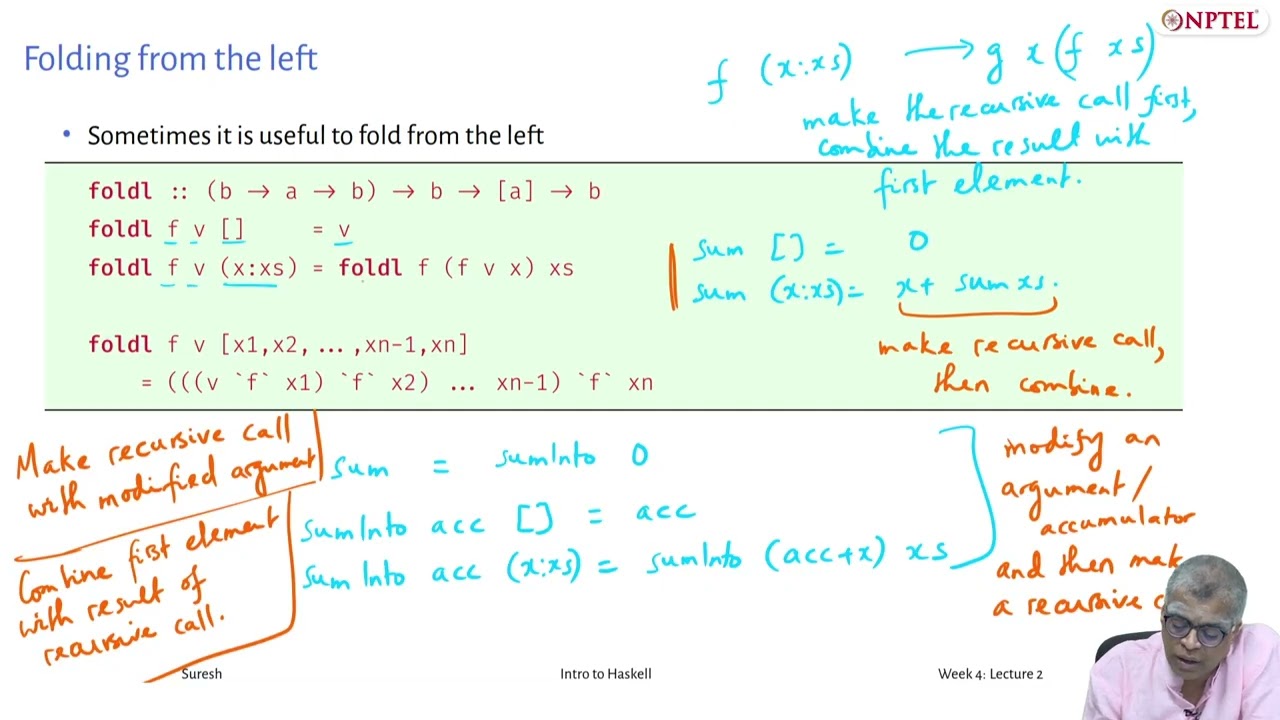 NPTEL
Folding from the left
f (x:xs) → g x (f xs)
make the recursive call first,
combine the result with
first element.
• Sometimes it is useful to fold from the left
foldl :: (b → a → b) → b → [a] → b
foldl f v [] = v
foldl f v (x:xs) = foldl f (f v x) xs
foldl f v [x1,x2, ... ,xn-1,xn]
= (((v `f` x1) `f` x2) ... xn-1) `f` xn
sum [] = 0
sum (x:xs) = x + sum xs.
make recursive call,
then combine.
Make recursive call
with modified argument
Combine first element
with result of
recursive call.
sum = sumInto 0
sumInto acc [] = acc
sumInto acc (x:xs) = sumInto (acc+x) xs
modify an
argument/
accumulator
and then mak
a recursive c
Suresh
Intro to Haskell
Week 4: Lecture 2